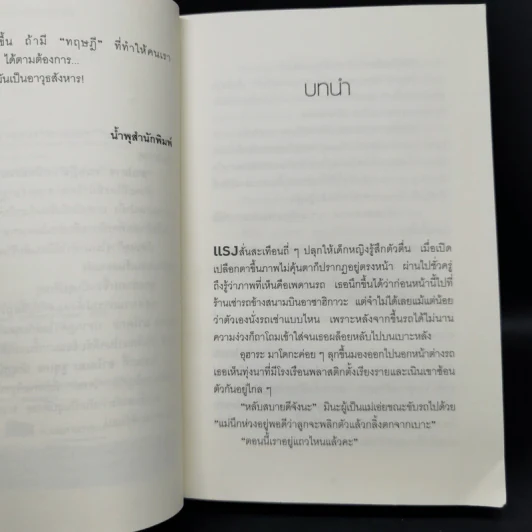 ขึ้น ถ้ามี “ทฤษฎี” ที่ทำให้คนเรา
ได้ตามต้องการ...
นเป็นอาวุธสังหาร!
น้ำพุสำนักพิมพ์
บทนำ
แรงสั่นสะเทือนถี่ ๆ ปลุกให้เด็กหญิงรู้สึกตัวตื่น เมื่อเปิด
เปลือกตาขึ้นภาพไม่คุ้นตาก็ปรากฏอยู่ตรงหน้า ผ่านไปชั่วครู่
ถึงรู้ว่าภาพที่เห็นคือเพดานรถ เธอนึกขึ้นได้ว่าก่อนหน้านี้ไปที่
ร้านเช่ารถข้างสนามบินอาซาฮิกาวะ แต่จำไม่ได้เลยแม้แต่น้อย
ว่าตัวเองนั่งรถเช่าแบบไหน เพราะหลังจากขึ้นรถได้ไม่นาน
ความง่วงก็ถาโถมเข้าใส่จนเธอผล็อยหลับไปบนเบาะหลัง
อุฮาระ มาโดกะค่อย ๆ ลุกขึ้นมองออกไปนอกหน้าต่างรถ
เธอเห็นทุ่งนาที่มีโรงเรือนพลาสติกตั้งเรียงรายและเนินเขาซ้อน
ตัวกันอยู่ไกล ๆ
“หลับสบายดีจังนะ” มินะผู้เป็นแม่เอ่ยขณะขับรถไปด้วย
“แม่นึกห่วงอยู่พอดีว่าลูกจะพลิกตัวแล้วกลิ้งตกจากเบาะ”
“ตอนนี้เราอยู่แถวไหนแล้วคะ”